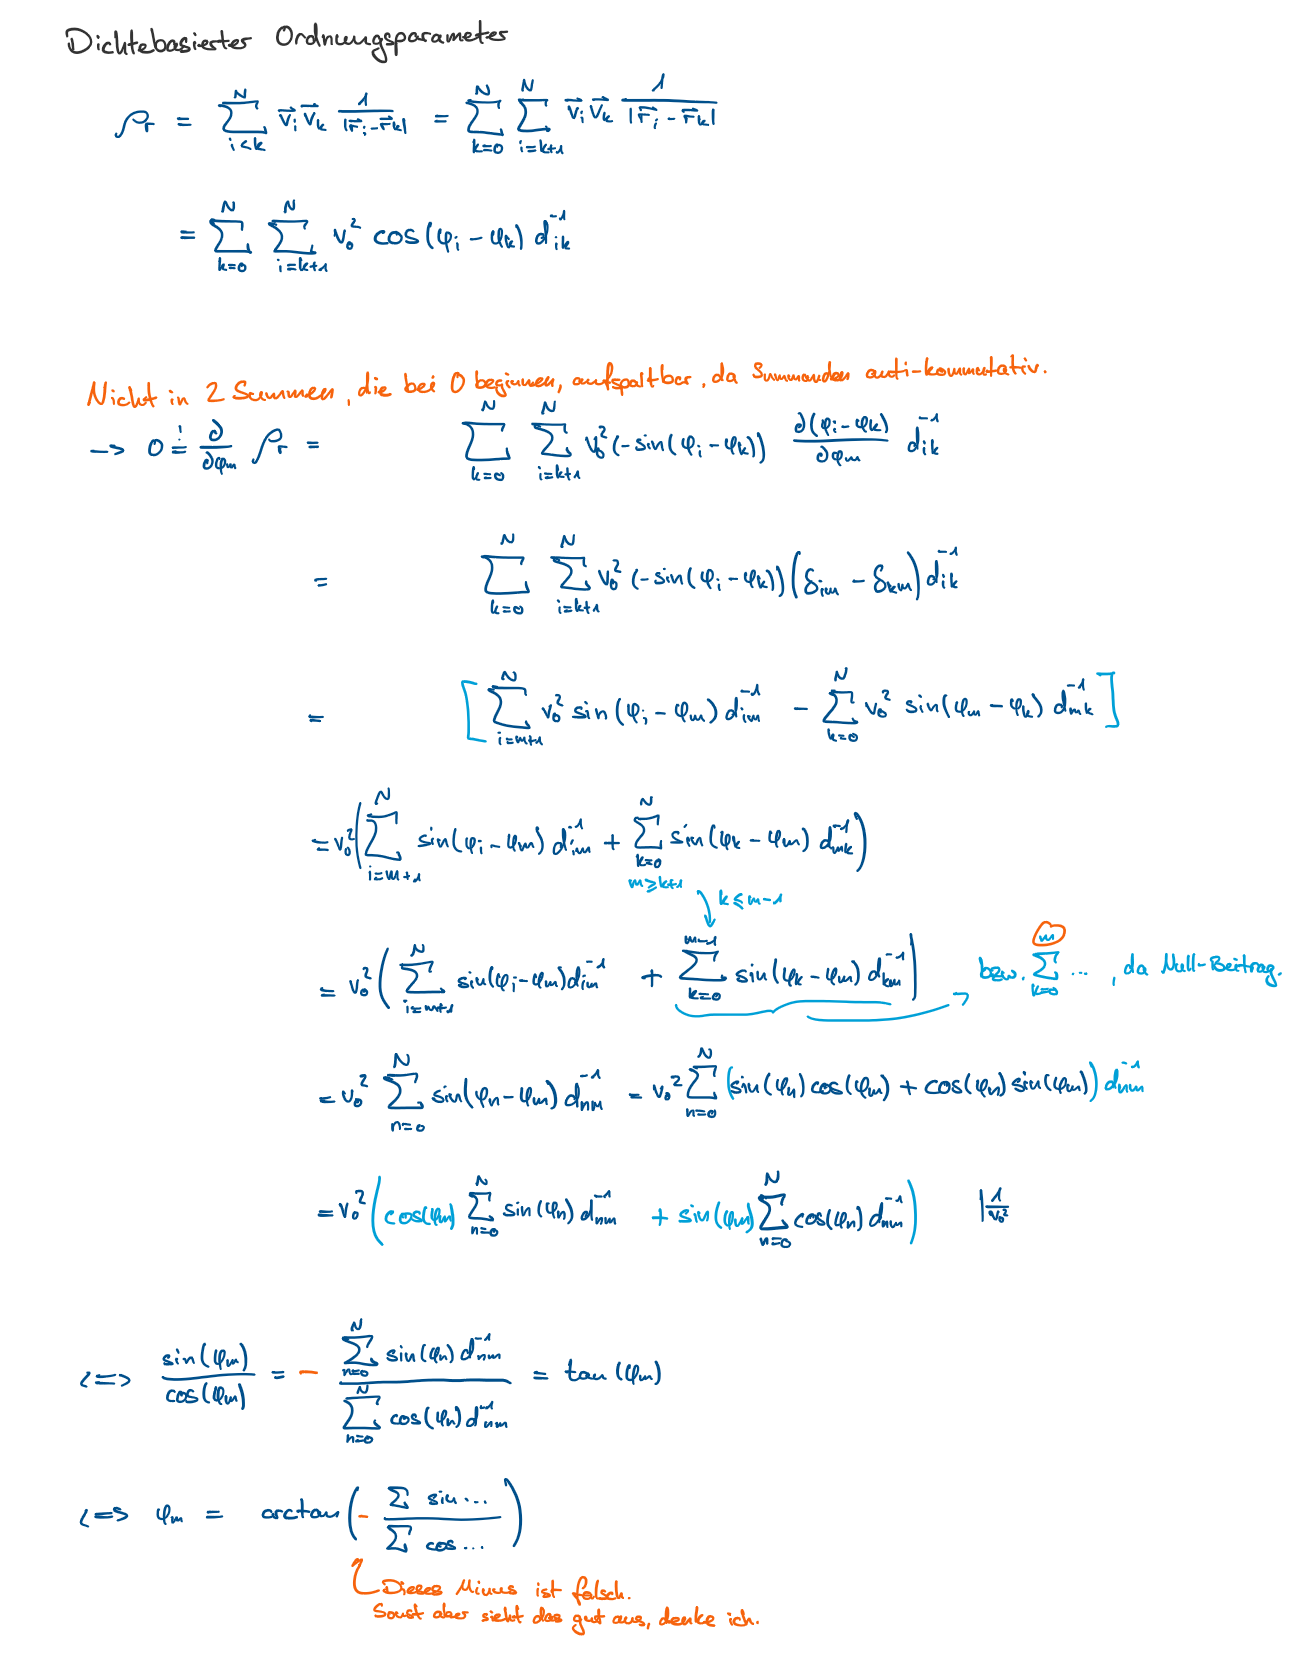 Dichtebasierter Ordnungsparameter
ρ_r = ∑_{i<k}^{N} v⃗_i v⃗_k 1/|r⃗_i - r⃗_k| = ∑_{k=0}^{N} ∑_{i=k+1}^{N} v⃗_i v⃗_k 1/|r⃗_i - r⃗_k|
= ∑_{k=0}^{N} ∑_{i=k+1}^{N} v_0^2 cos(φ_i - φ_k) d_{ik}^{-1}
Nicht in 2 Summen, die bei 0 beginnen, aufspaltbar, da Summanden anti-kommutativ.
--> 0 =! ∂/∂φ_m ρ_r = ∑_{k=0}^{N} ∑_{i=k+1}^{N} v_0^2 (-sin(φ_i - φ_k)) ∂(φ_i - φ_k)/∂φ_m d_{ik}^{-1}
= ∑_{k=0}^{N} ∑_{i=k+1}^{N} v_0^2 (-sin(φ_i - φ_k)) (δ_{im} - δ_{km}) d_{ik}^{-1}
= [∑_{i=m+1}^{N} v_0^2 sin(φ_i - φ_m) d_{im}^{-1} - ∑_{k=0}^{N} v_0^2 sin(φ_m - φ_k) d_{mk}^{-1}]
= v_0^2 (∑_{i=m+1}^{N} sin(φ_i - φ_m) d_{im}^{-1} + ∑_{k=0}^{N} sin(φ_k - φ_m) d_{mk}^{-1})
m ≥ k+1
k ≤ m-1
= v_0^2 (∑_{i=m+1}^{N} sin(φ_i - φ_m) d_{im}^{-1} + ∑_{k=0}^{m-1} sin(φ_k - φ_m) d_{km}^{-1}) bzw. ∑_{k=0}^{m} ... , da Null-Beitrag.
= v_0^2 ∑_{n=0}^{N} sin(φ_n - φ_m) d_{nm}^{-1} = v_0^2 ∑_{n=0}^{N} (sin(φ_n) cos(φ_m) + cos(φ_n) sin(φ_m)) d_{nm}^{-1}
= v_0^2 (cos(φ_m) ∑_{n=0}^{N} sin(φ_n) d_{nm}^{-1} + sin(φ_m) ∑_{n=0}^{N} cos(φ_n) d_{nm}^{-1}) | 1/v_0^2
<=> sin(φ_m)/cos(φ_m) = - ∑_{n=0}^{N} sin(φ_n) d_{nm}^{-1} / ∑_{n=0}^{N} cos(φ_n) d_{nm}^{-1} = tan(φ_m)
<=> φ_m = arctan(- ∑ sin... / ∑ cos...)
Dieses Minus ist falsch.
Sonst aber sieht das gut aus, denke ich.